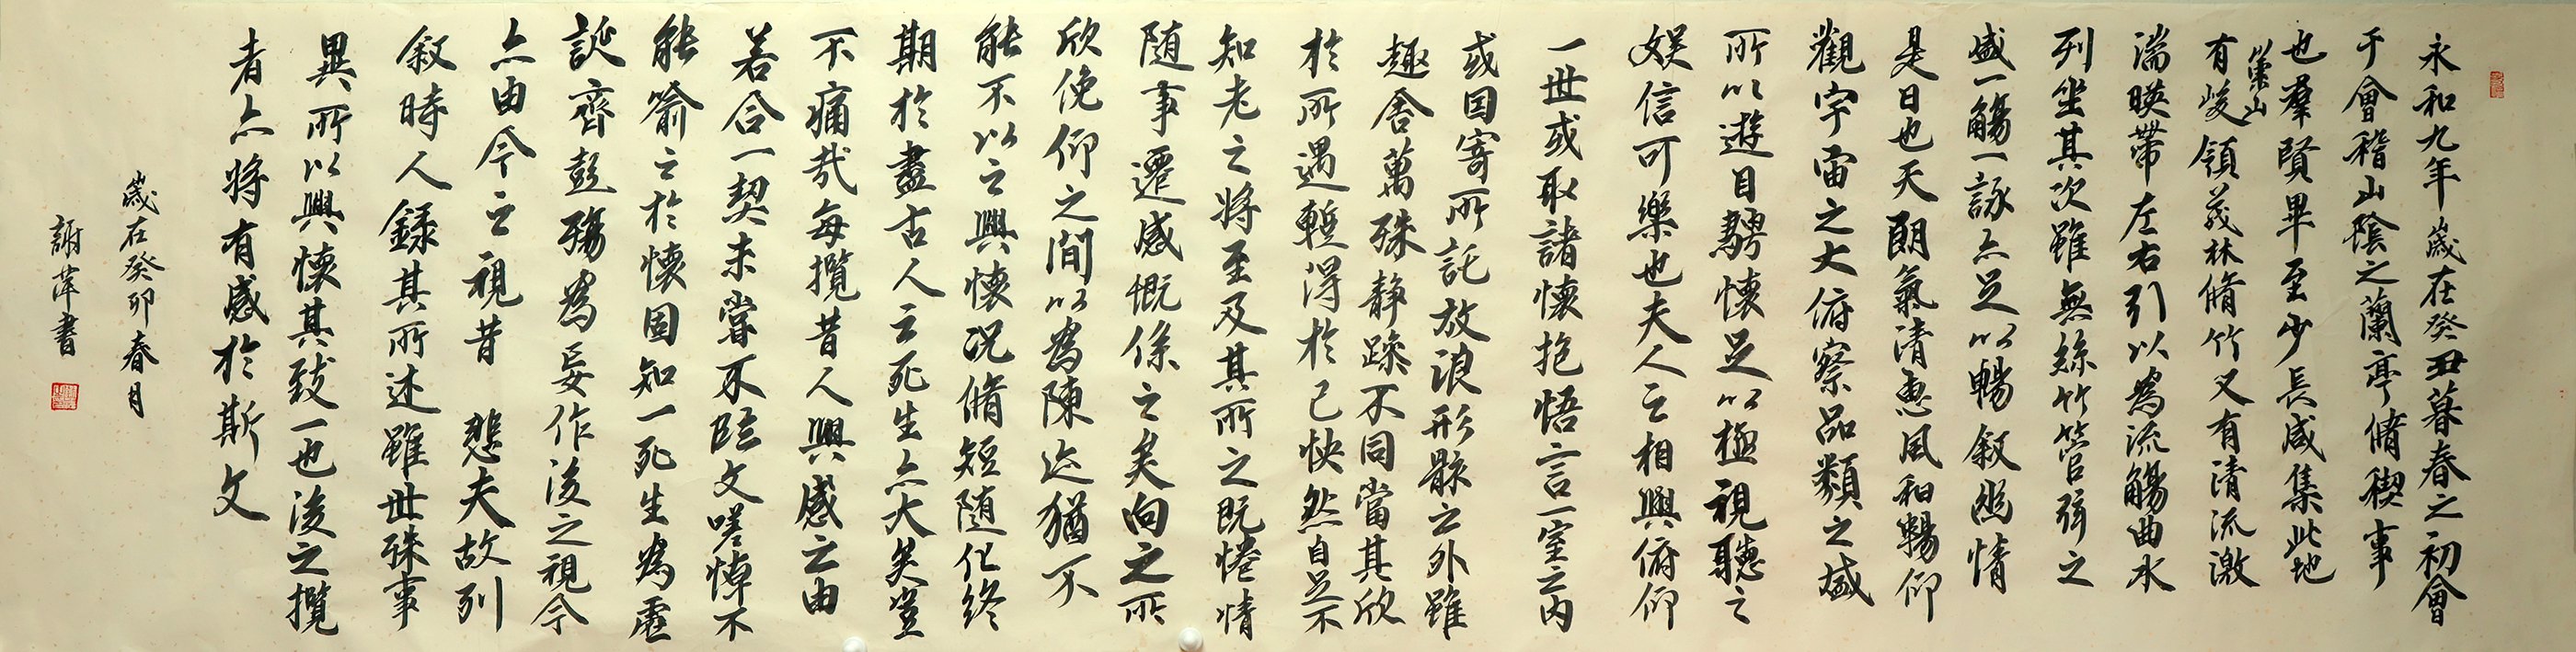 永和九年歲在癸丑暮春之初會
于會稽山陰之蘭亭脩稧事
也羣賢畢至少長咸集此地
崇山
有峻領茂林脩竹又有清流激
湍暎帶左右引以為流觴曲水
列坐其次雖無絲竹管弦之
盛一觴一詠亦足以暢叙幽情
是日也天朗氣清惠風和暢仰
觀宇宙之大俯察品類之盛
所以遊目騁懷足以極視聽之
娛信可樂也夫人之相與俯仰
一世或取諸懷抱悟言一室之内
或因寄所託放浪形骸之外雖
趣舍萬殊静躁不同當其欣
於所遇蹔得於己快然自足不
知老之將至及其所之既惓情
随事遷感慨係之矣向之所
欣俛仰之間以為陳迹猶不
能不以之興懷況脩短随化終
期於盡古人云死生亦大矣豈
不痛哉每攬昔人興感之由
若合一契未嘗不臨文嗟悼不
能喻之於懷固知一死生為虛
誕齊彭殤為妄作後之視今
亦由今之視昔 悲夫故列
叙時人録其所述雖世殊事
異所以興懷其致一也後之攬
者亦將有感於斯文
歲在癸卯春月
謝萍書